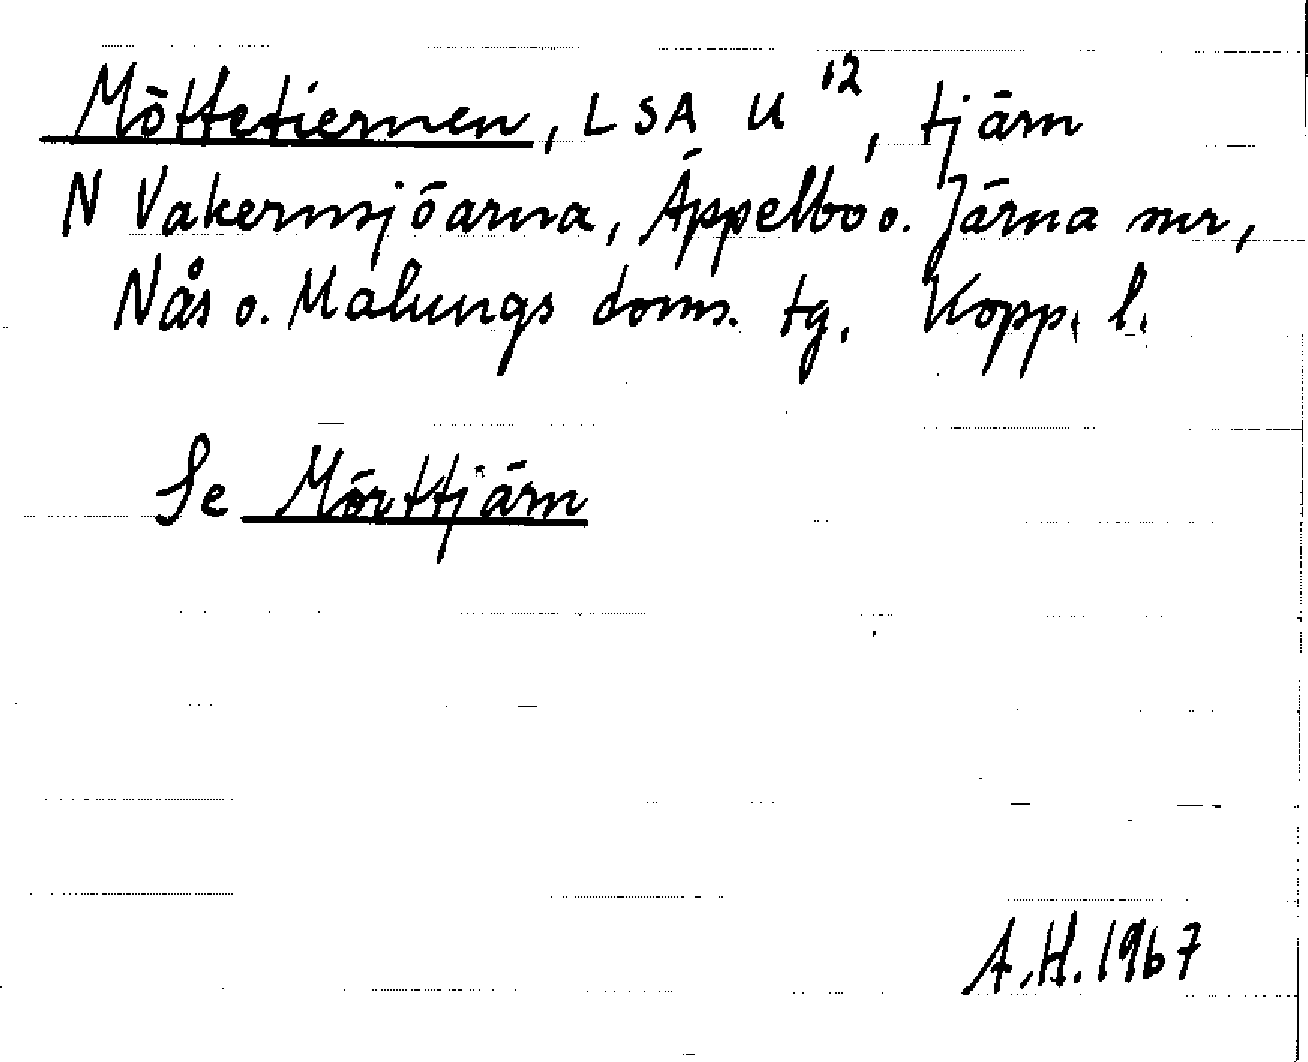 Möttetiernen, LSA U 12, tjärn
N Vakernsjöarna, Äppelbo o. Järna snr,
Nås o. Malungs doms. tg. Kopp. l.
Se Mörttjärn
A.H. 1967